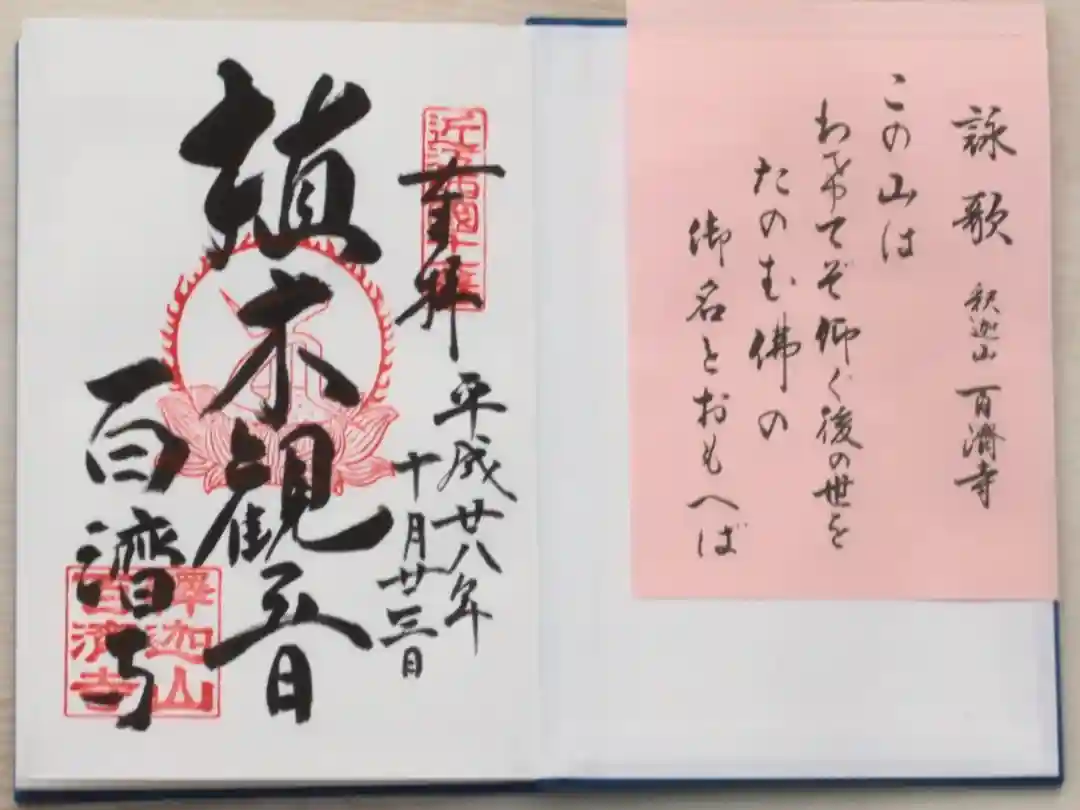 詠歌 釈迦山 百済寺
この山は
わきてぞ仰ぐ後の世を
たのむ佛の
御名とおもへば
奉拝
平成廿八年
十月廿三日
植木観音
百濟寺
釋迦山
百濟寺